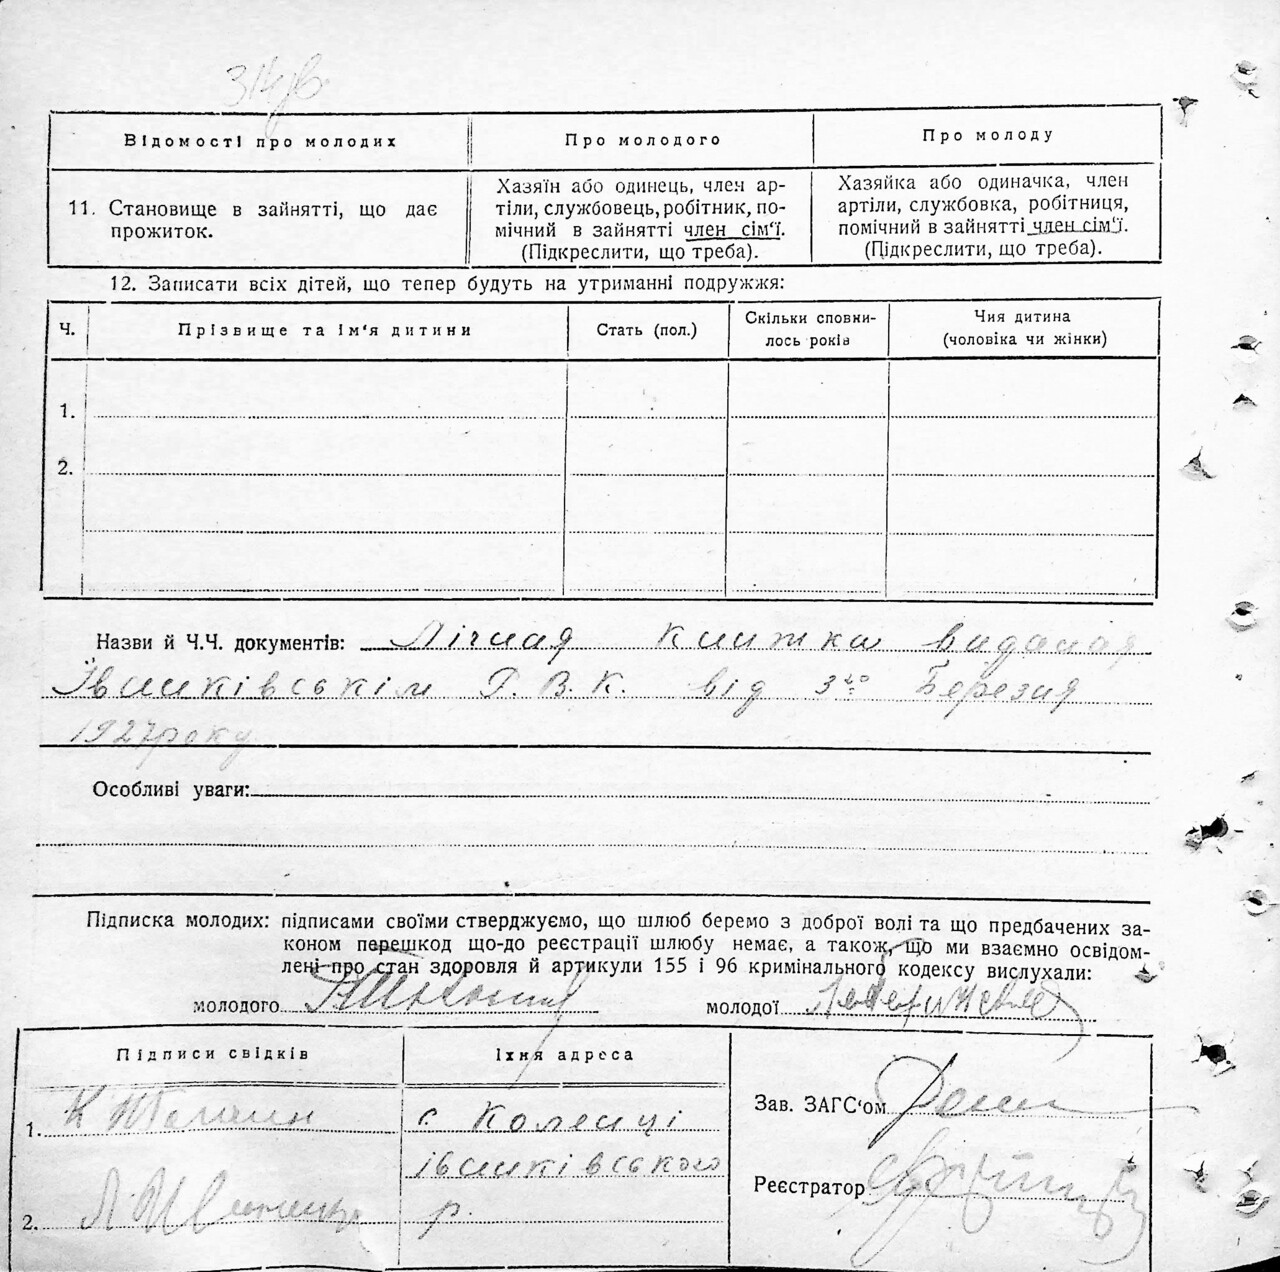 314зв
Відомості про молодих
Про молодого
Про молоду
11. Становище в зайнятті, що дає
прожиток.
Хазяїн або одинець, член ар-
тіли, службовець, робітник, по-
мічний в зайнятті член сім‘ї.
(Підкреслити, що треба).
Хазяйка або одиначка, член
артіли, службовка, робітниця,
помічний в зайнятті член сім‘ї.
(Підкреслити, що треба).
12. Записати всіх дітей, що тепер будуть на утриманні подружжя:
Ч.
Прізвище та ім‘я дитини
Стать (пол.)
Скільки сповни-
лось років
Чия дитина
(чоловіка чи жінки)
1.
2.
Назви й Ч.Ч. документів: Лічная книжка виданая
Іванківськім Р.В.К. від 3го Березня
1927 року
Особливі уваги:
Підписка молодих: підписами своїми стверджуємо, що шлюб беремо з доброї волі та що предбачених за-
коном перешкод що-до реєстрації шлюбу немає, а також, що ми взаємно освідом-
лені про стан здоровля й артикули 155 і 96 кримінального кодексу вислухали:
молодого
молодої
Підписи свідків
Їхня адреса
1.
с. Коленці
Зав. ЗАГС‘ом
іванківського
Реєстратор
2.
р.